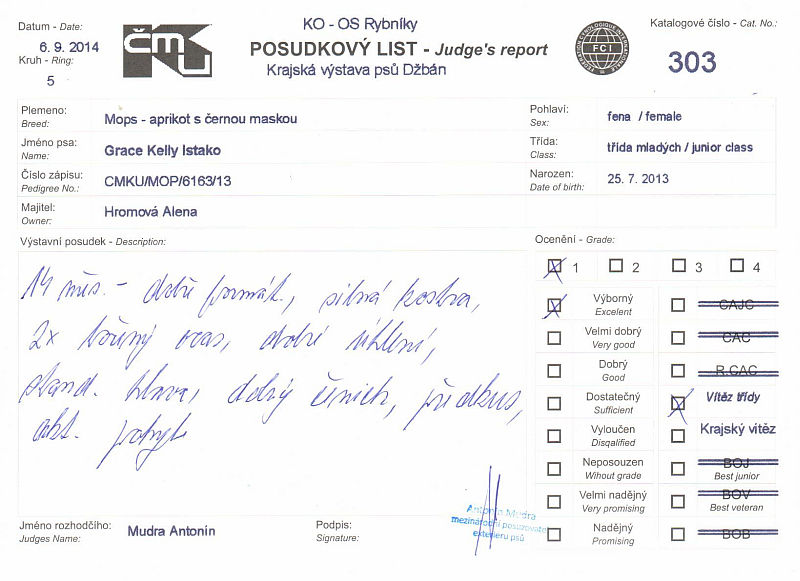 Datum - Date:
6. 9. 2014
Kruh - Ring:
5
ČMKU
KO - OS Rybníky
POSUDKOVÝ LIST - Judge's report
Krajská výstava psů Džbán
FCI
Katalogové číslo - Cat. No.:
303
Plemeno:
Breed:
Mops - aprikot s černou maskou
Pohlaví:
Sex:
fena / female
Jméno psa:
Name:
Grace Kelly Istako
Třída:
Class:
třída mladých / junior class
Číslo zápisu:
Pedigree No.:
CMKU/MOP/6163/13
Narozen:
Date of birth:
25. 7. 2013
Majitel:
Owner:
Hromová Alena
Výstavní posudek - Description:
14 měs. - dobrý formát, silná kostra,
2x točený ocas, dobré úhlení,
stand. hlava, dobrý čenich, předkus,
akt. pohyb
Ocenění - Grade:
1 2 3 4
Výborný
Excelent
CAJC
Velmi dobrý
Very good
CAC
Dobrý
Good
R.CAC
Dostatečný
Sufficient
Vítěz třídy
Vyloučen
Disqalified
Krajský vítěz
Neposouzen
Wihout grade
BOJ
Best junior
Velmi nadějný
Very promising
BOV
Best veteran
Nadějný
Promising
BOB
Jméno rozhodčího:
Judges Name:
Mudra Antonín
Podpis:
Signature:
Antonín Mudra
mezinárodní posuzovatel
exteriéru psů